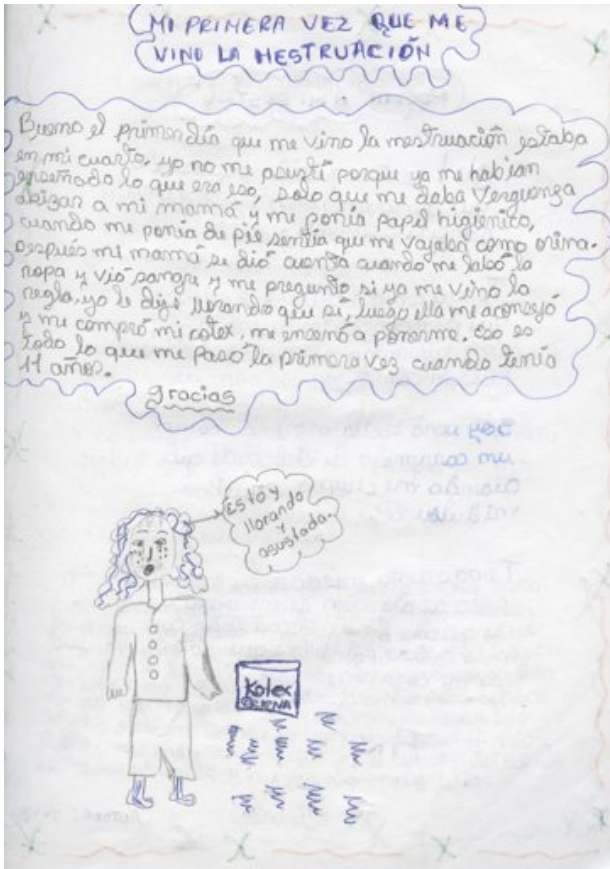 MI PRIMERA VEZ QUE ME
VINO LA MESTRUACIÓN
Bueno el primer día que me vino la mestruación estaba
en mi cuarto, yo no me asusté porque ya me habían
enseñado lo que era eso, solo que me daba Verguenza
abizar a mi mamá y me ponía papel higiénico,
cuando me ponía de pie sentía que me vajaba como orina.
Después mi mamá se dió cuenta cuando me labó la
ropa y vió sangre y me pregunto si ya me vino la
regla, yo le dije llorando que sí, luego ella me aconsejó
y me compró mi kotex, me enseñó a ponerme. Eso es
todo lo que me Pasó la primera vez cuando tenía
11 años.
gracias
Estoy
llorando
y
asustada.
Kotex